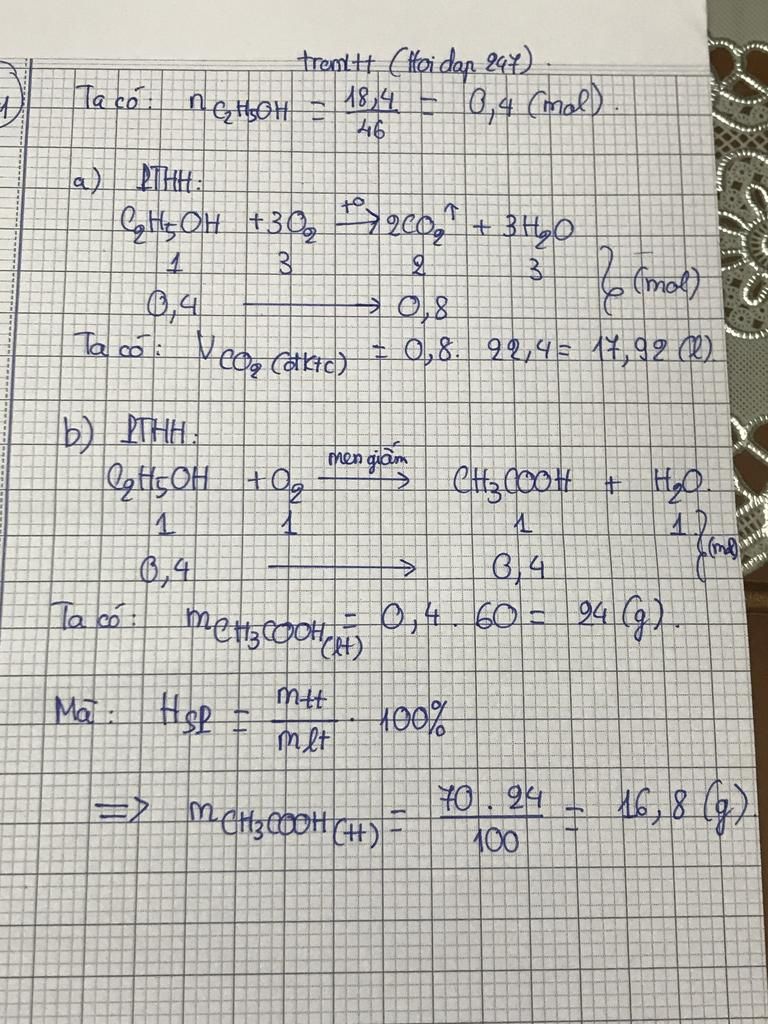 tremtt (Hoidap 247).
1)
Ta có: nC₂H₅OH = 18,4/46 = 0,4 (mol).
a) PTHH:
C₂H₅OH + 3O₂ →(t°) 2CO₂↑ + 3H₂O
1 3 2 3 } (mol)
0,4 → 0,8
Ta có: VCO₂ (đktc) = 0,8. 22,4 = 17,92 (l).
b) PTHH:
C₂H₅OH + O₂ →(men giấm) CH₃COOH + H₂O.
1 1 1 1 } (mol)
0,4 → 0,4
Ta có: mCH₃COOH (lt) = 0,4 . 60 = 24 (g).
Mà: HSP = mtt/mlt . 100%
=> mCH₃COOH (tt) = 70 . 24/100 = 16,8 (g).